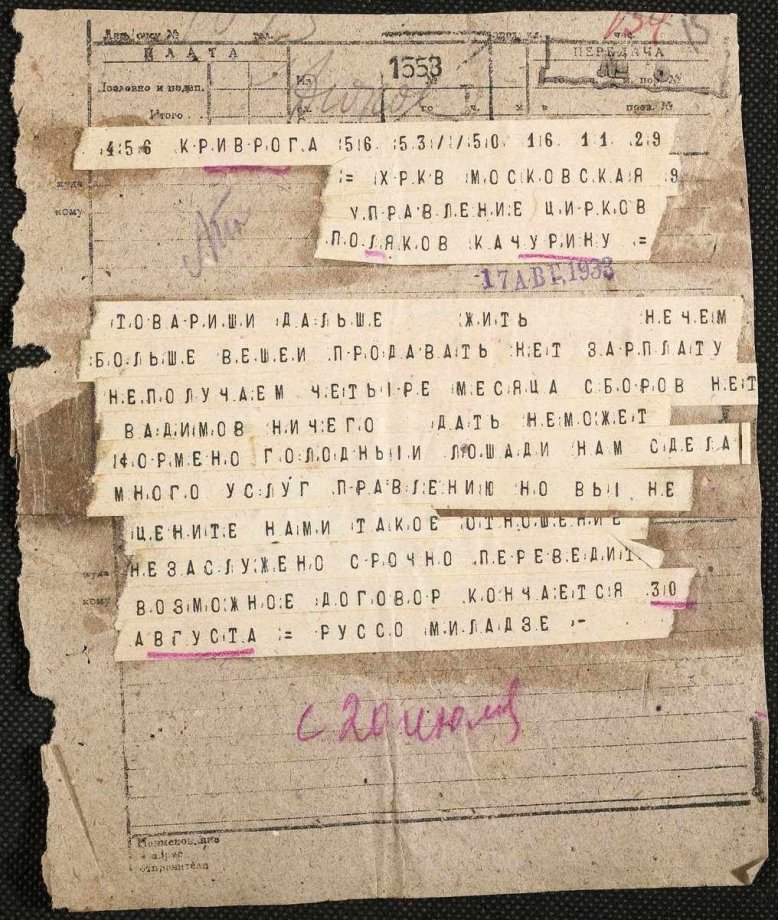 134 13
ПЛАТА
ПЕРЕДАЧА
1553
Дословно и подеп.
Итого
456 КРИВРОГА 56 53//50 16 11 29
= ХРКВ МОСКОВСКАЯ 9
куда
кому
УПРАВЛЕНИЕ ЦИРКОВ
ПОЛЯКОВ КАЧУРИНУ =
17 АВГ. 1933
ТОВАРИШИ ДАЛЬШЕ ЖИТЬ НЕЧЕМ
БОЛЬШЕ ВЕШЕИ ПРОДАВАТЬ НЕТ ЗАРПЛАТУ
НЕПОЛУЧАЕМ ЧЕТЫРЕ МЕСЯЦА СБОРОВ НЕТ
ВАДИМОВ НИЧЕГО ДАТЬ НЕМОЖЕТ
ФОРМЕНО ГОЛОДНЫИ ЛОШАДИ НАМ СДЕЛА
МНОГО УСЛУГ ПРАВЛЕНИЮ НО ВЫ НЕ
ЦЕНИТЕ НАМИ ТАКОЕ ОТНОШЕНИЕ
НЕЗАСЛУЖЕНО СРОЧНО ПЕРЕВЕДИТ
куда
кому
ВОЗМОЖНОЕ ДОГОВОР КОНЧАЕТСЯ 30
АВГУСТА = РУССО МИЛАДЗЕ -
с 20 июля
Наименование
и адрес
отправителя